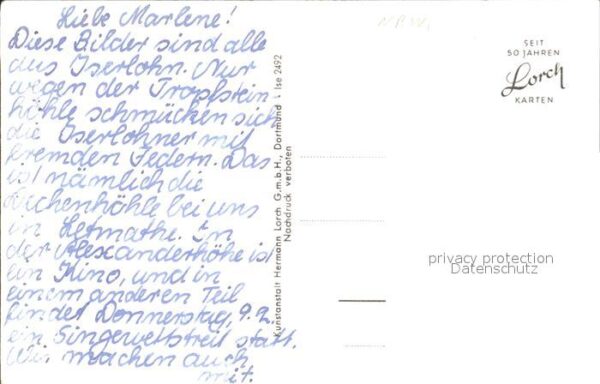 Liebe Marlene!
Diese Bilder sind alle
aus Iserlohn. Nur
wegen der Tropfstein-
höhle schmücken sich
die Iserlohner mit
fremden Federn. Das
ist nämlich die
Dechenhöhle bei uns
in Letmathe. In
der Alexanderhöhe ist
ein Kino, und in
einem anderen Teil
findet Donnerstag, 9.2.
ein Singewettstreit statt.
Wir machen auch
mit.
Kunstanstalt Herrmann Lorch G.m.b.H., Dortmund · Ise 2492
Nachdruck verboten
NRW
SEIT
50 JAHREN
Lorch
KARTEN
privacy protection
Datenschutz